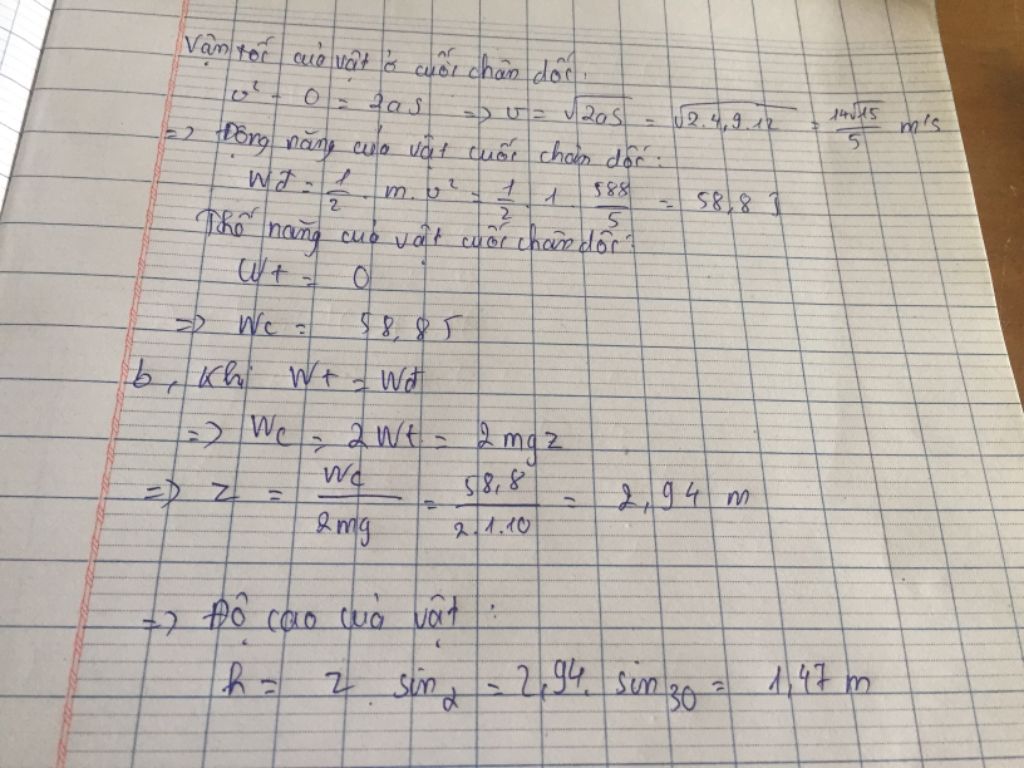 Vận tốc của vật ở cuối chân dốc:
v² - 0 = 2as => v = √2as = √2.4,9.12 = 14√15/5 m/s
=> Động năng của vật cuối chân dốc:
Wđ = 1/2 . m. v² = 1/2 . 1 588/5 = 58,8 J
Thế năng của vật cuối chân dốc:
Wt = 0
=> Wc = 58,8J
b, Khi Wt = Wđ
=> Wc = 2Wt = 2mgz
=> Z = Wc/2mg = 58,8/2.1.10 = 2,94 m
=> Độ cao của vật :
h = Z sin α = 2,94. sin 30 = 1,47 m